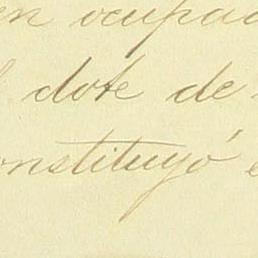 en ocupad
dote de
onstituyó e